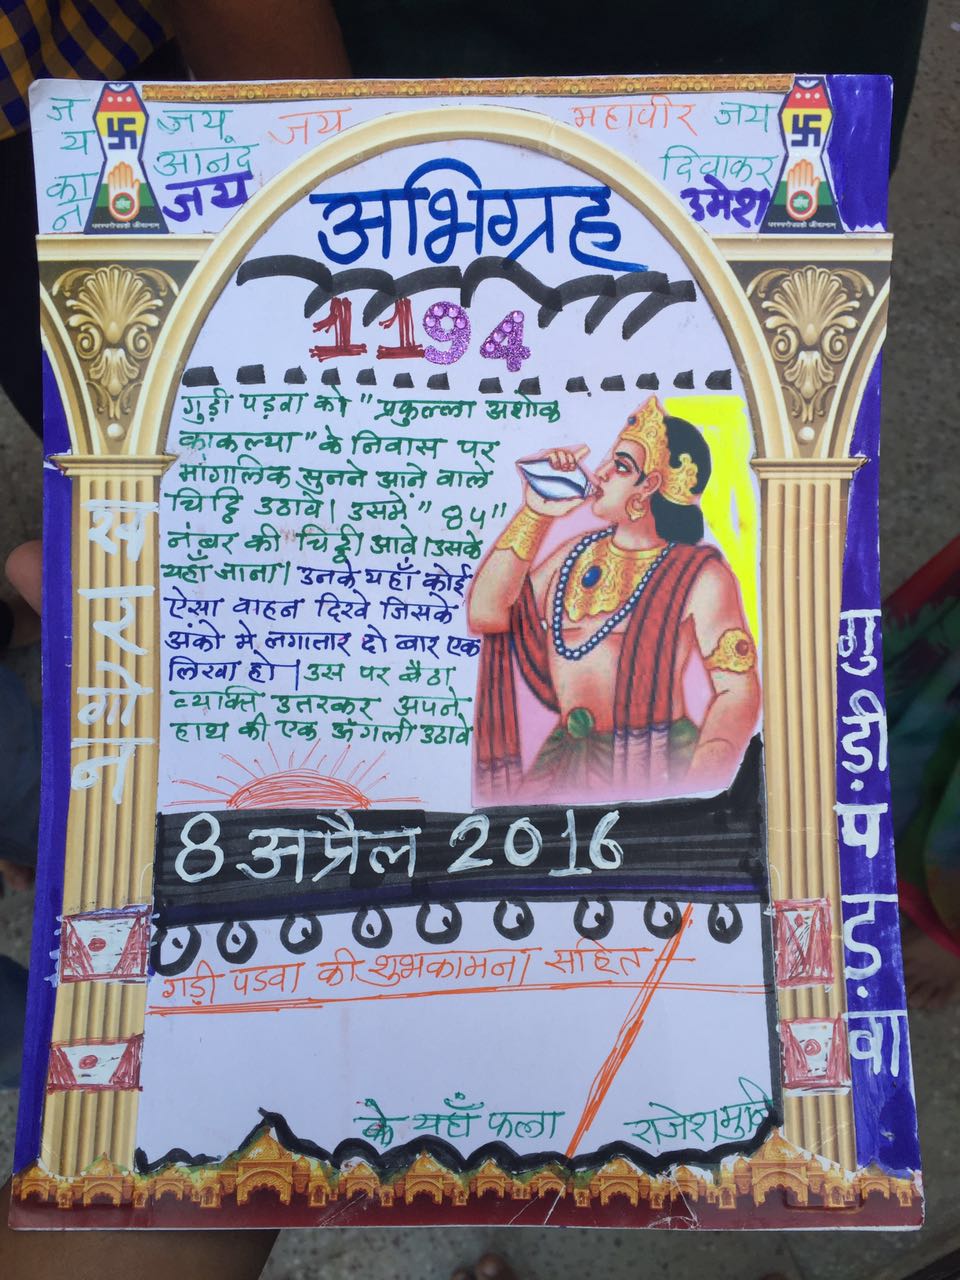 जय कान
जय आनंद
जय
जय
महावीर
जय दिवाकर
उमेश
परस्परोपग्रहो जीवानाम्
परस्परोपग्रहो जीवानाम्
अभिग्रह
1194
गुड़ी पड़वा को "प्रफुल्ला अशोक
काकल्या" के निवास पर
मांगलिक सुनने आने वाले
चिट्ठि उठावे। उसमें "84"
नंबर की चिट्ठी आवे। उसके
यहाँ जाना। उनके यहाँ कोई
ऐसा वाहन दिखे जिसके
अंको मे लगातार दो बार एक
लिखा हो। उस पर बैठा
व्यक्ति उतरकर अपने
हाथ की एक ऊंगली उठावे
8 अप्रैल 2016
गुड़ी पडवा की शुभकामना सहित
के यहाँ फला
राजेश मुनि
गुड़ी पड़वा